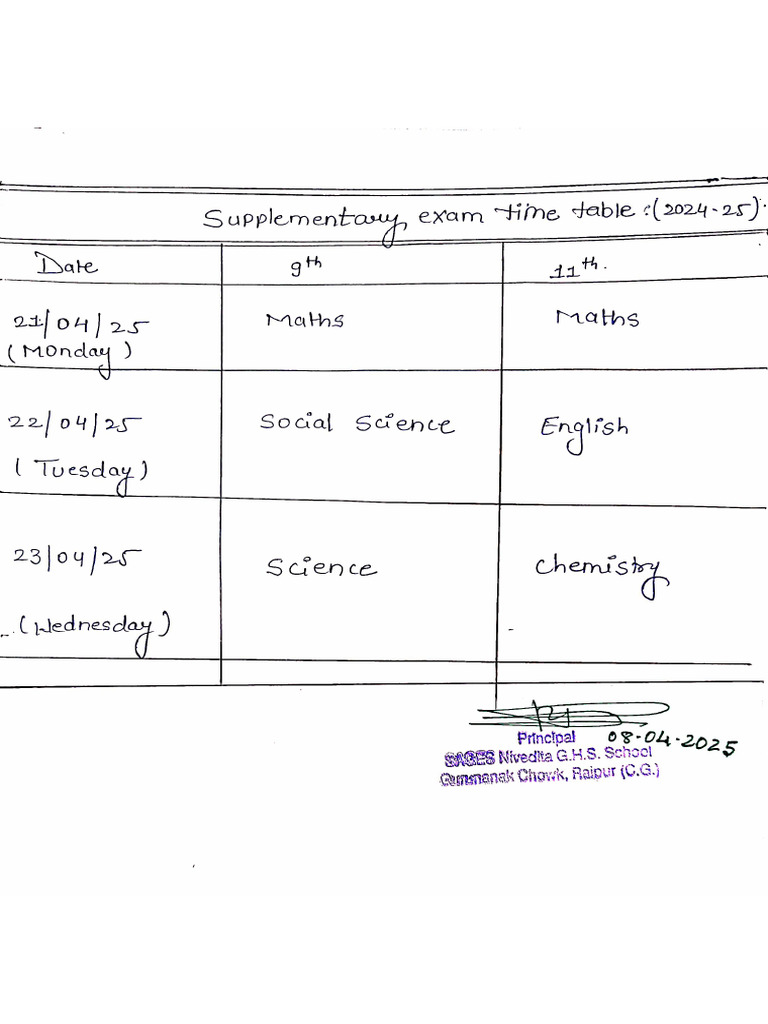 Supplementary exam time table :(2024-25).
Date 9th 11th.
21/04/25 Maths Maths
(Monday)
22/04/25 Social Science English
(Tuesday)
23/04/25 Science Chemistry
(Wednesday)
Principal 08-04-2025
SAGES Nivedita G.H.S. School
Gurunanak Chowk, Raipur (C.G.)